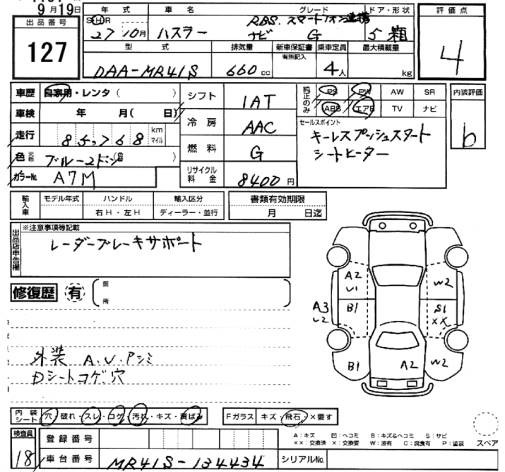 9月19日
出品番号
127
年式 車名 グレード ドア・形状
27年10月 ハスラー G 5
型式 排気量 新車保証書 有無記入 乗車定員 最大積載量
DAA-MR41S 660cc 4人 kg
評価点
4
車歴 自家用・レンタ( )
車検 年 月
走行 85,768 km マイル
色 ブルー2トーン
カラーNo. A7M
シフト IAT
冷房 AAC
燃料 G
リサイクル料金 8400円
純正のみ PS PW AW SR
ABS エアB TV ナビ
セールスポイント
キーレスプッシュスタート
シートヒーター
内装評価
b
輸入車 モデル年式 ハンドル 輸入区分 書類有効期限
右H・左H ディーラー・並行 月 日迄
※注意事項等記載
レーダーブレーキサポート
修復歴 有 箇所
外装 A.U.
Dシートコゲ穴
A2 U1 W2
A3 U2 B1 S1 XX
B1 A2 W2
内装シート 穴 破れ・スレ・コゲ・汚れ・キズ・黄ばみ Fガラス キズ・飛石・×要す
A:キズ U:ヘコミ B:キズ&ヘコミ S:サビ
XX:交換済 X:交換要 W:波有 C:腐食有 P:塗装
スペア
検査員
18
登録番号
車台番号 MR41S-134434 シリアルNo.